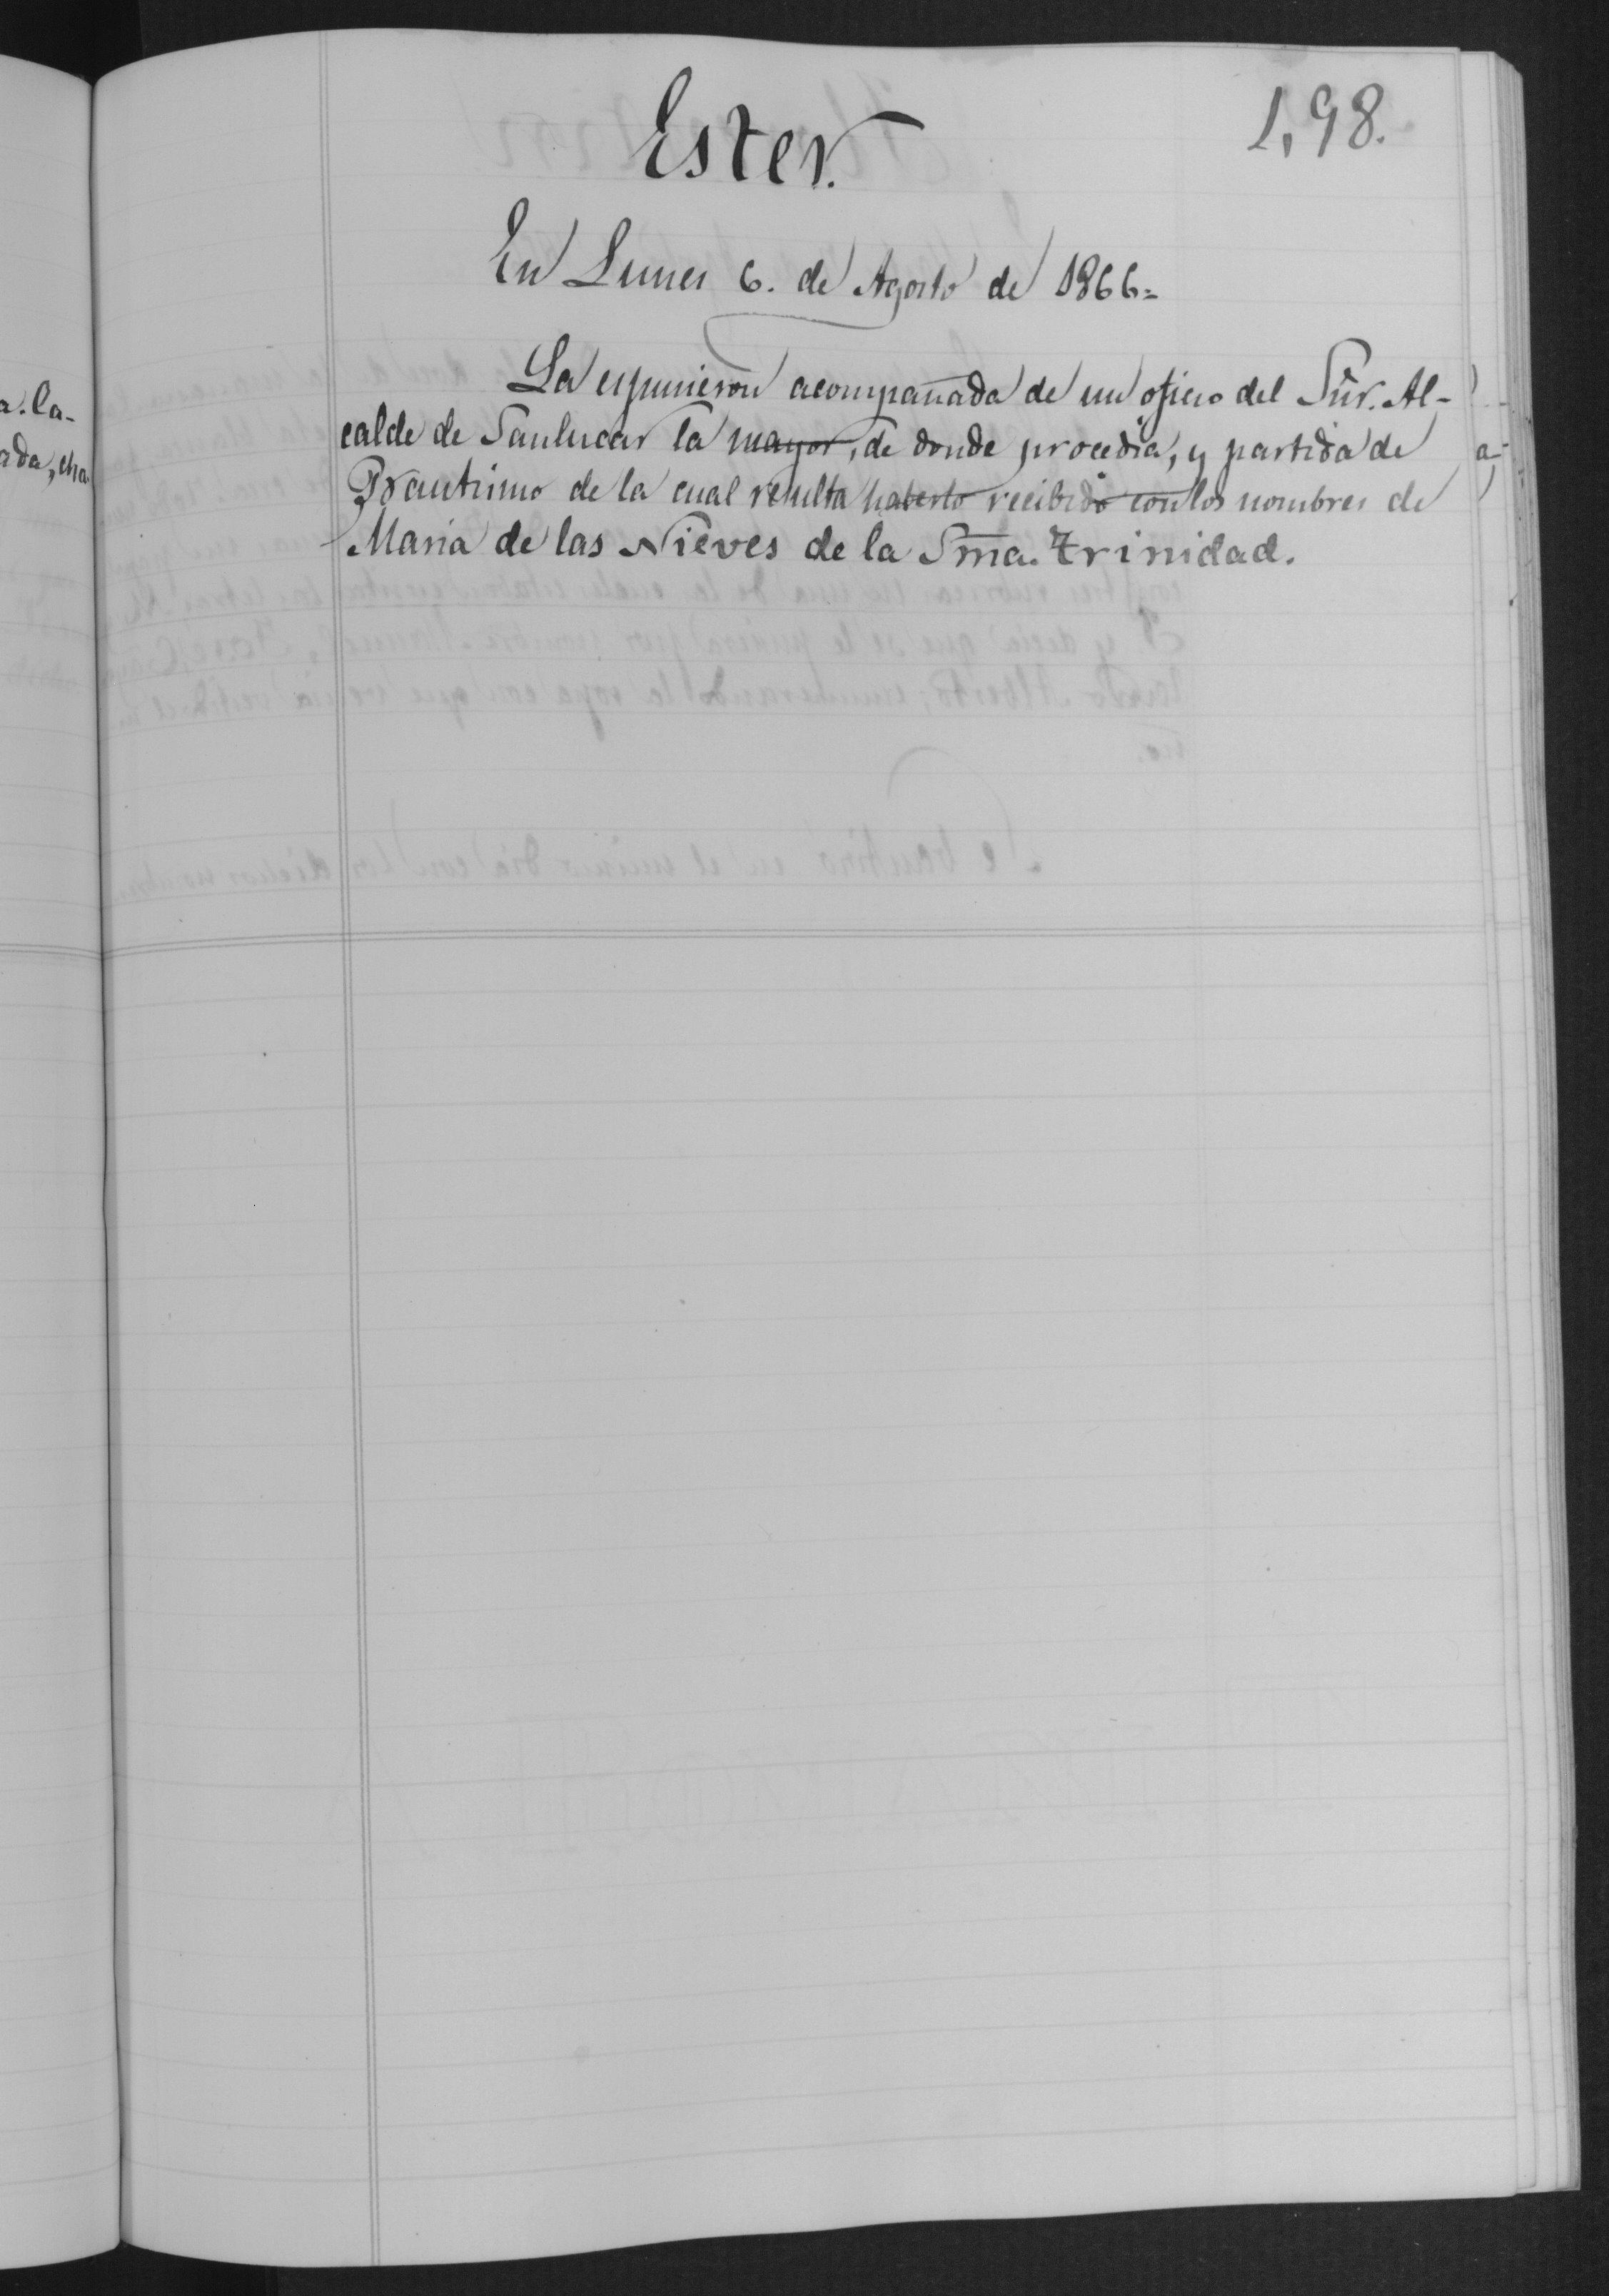 1,98.
Ester.
En Lunes 6. de Agosto de 1866=
La espusieron acompañada de un oficio del Sũr. Al-
calde de Sanlucar la mayor, de donde procedia, y partida de
Bautismo de la cual resulta haberlo recibido con los nombres de
Maria de las Nieves de la Sm̃a. Trinidad.
a. la-
ada, cha
a-